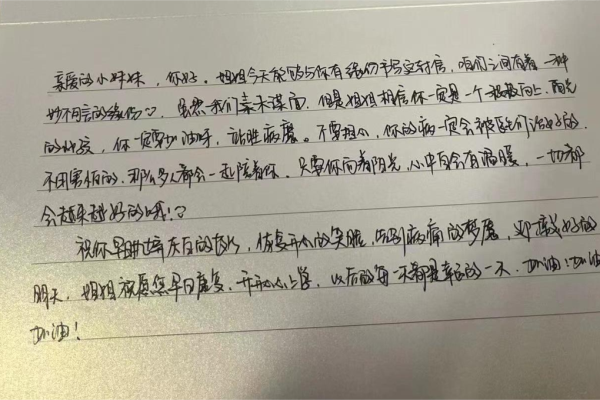 亲爱的小妹妹，你好。姐姐今天能够与你有缘份书写这封信，咱们之间有着一种
妙不可言的缘份♡。虽然我们素未谋面，但是姐姐相信你一定是一个积极向上，阳光
的女孩，你一定要加油呀，战胜病魔。不要担心，你的病一定会被医生们治好的，
不用害怕的，那么多人都会一起陪着你，只要你向着阳光，心中自会有温暖，一切都
会越来越好的哦！♡
祝你早日，恢复开心的笑脸，告别病痛的梦魇，迎接美好的
明天，姐姐祝愿您早日康复，开开心心上学，以后的每一天都是幸运的一天，加油！加油
加油！